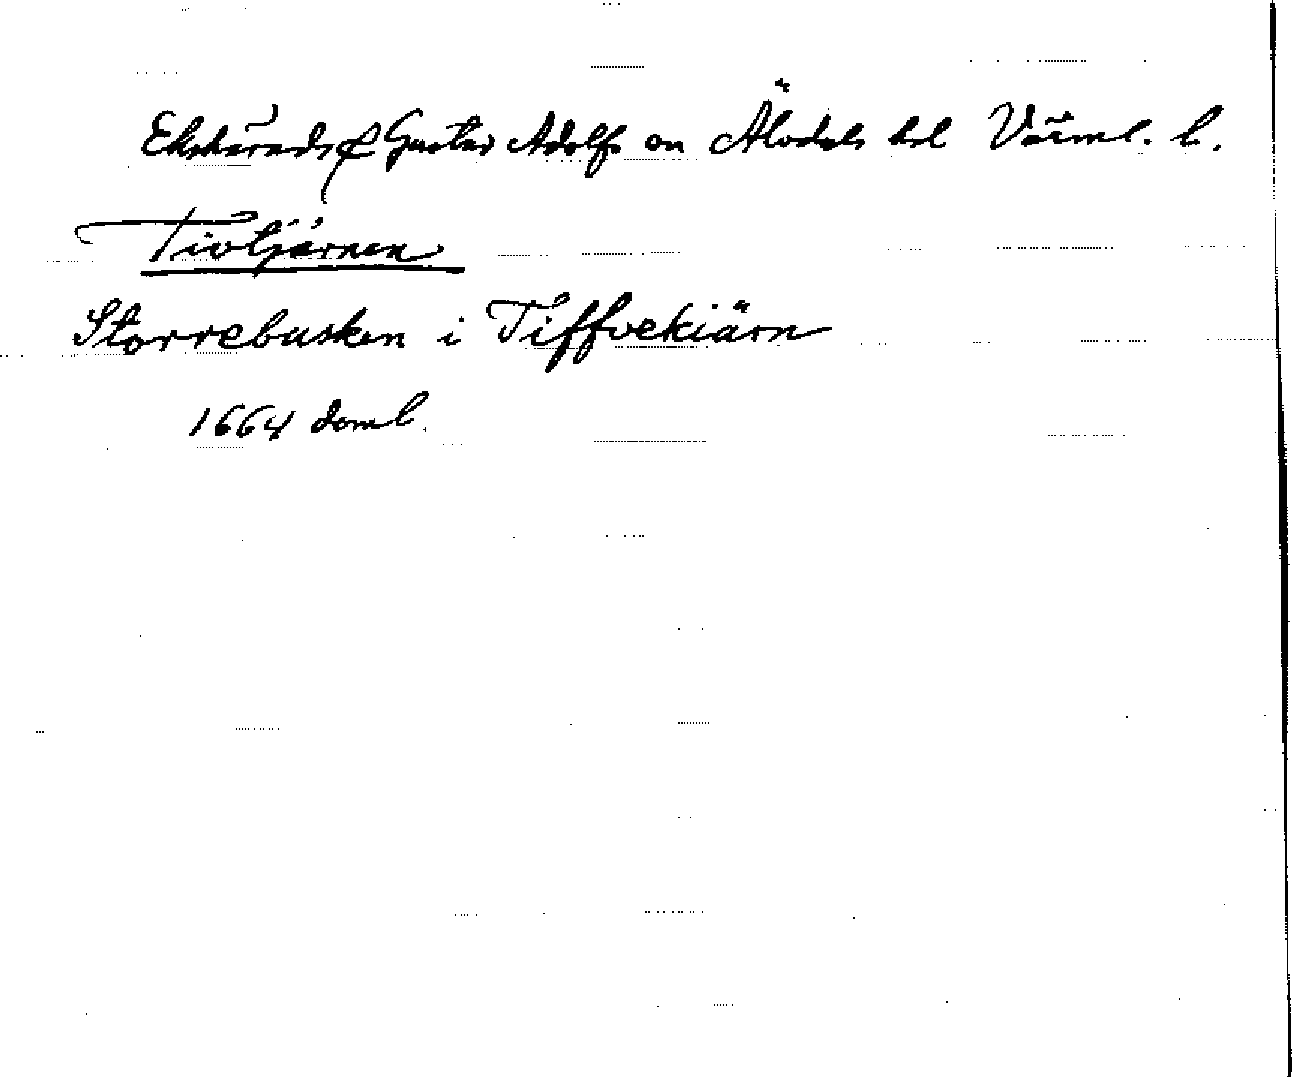 Ekshärads & Gustav Adolfs sn Älvdals hd Värml. l.
Tivtjärnen
Storrebusken i Tiffvekiärn
1664 domb.